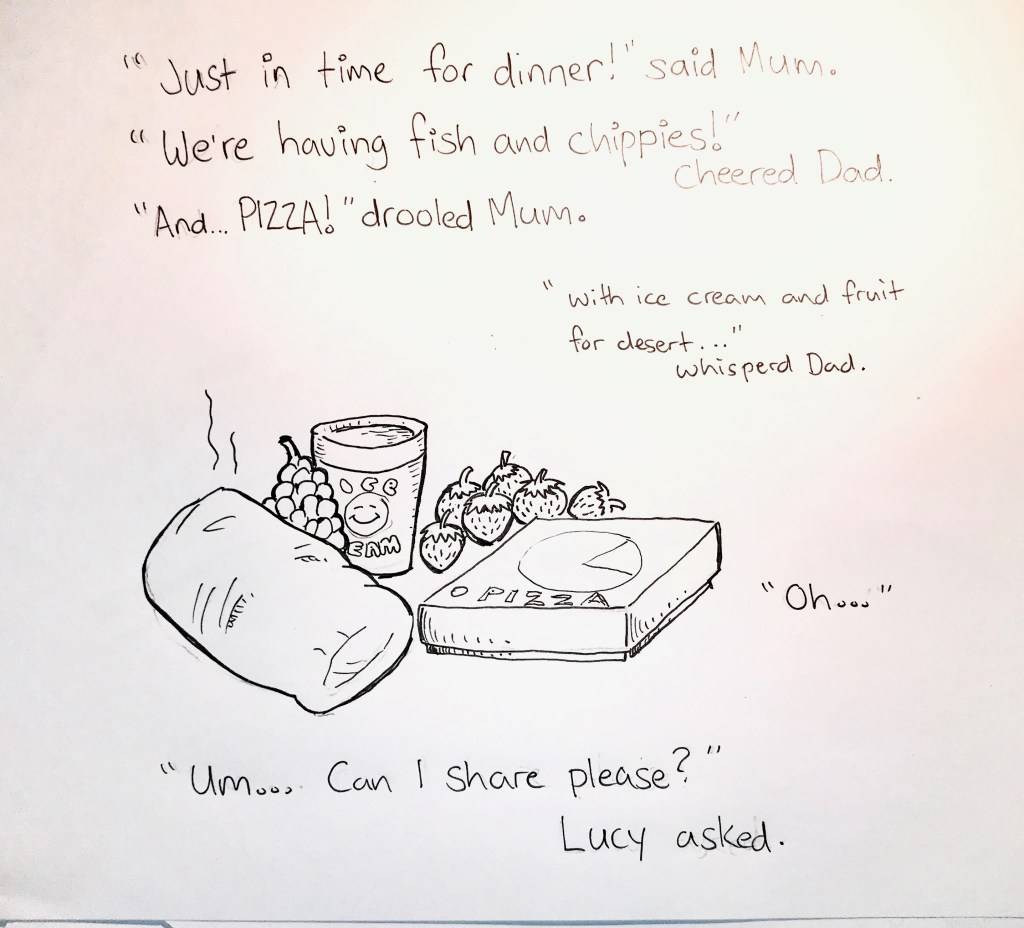 "“Just in time for dinner!" said Mum.
"We're having fish and chippies!"
cheered Dad.
"And... PIZZA!" drooled Mum.
"with ice cream and fruit
for desert..."
whisperd Dad.
ICE
EAM
PIZZA
"Oh..."
"Um... Can I share please?"
Lucy asked.